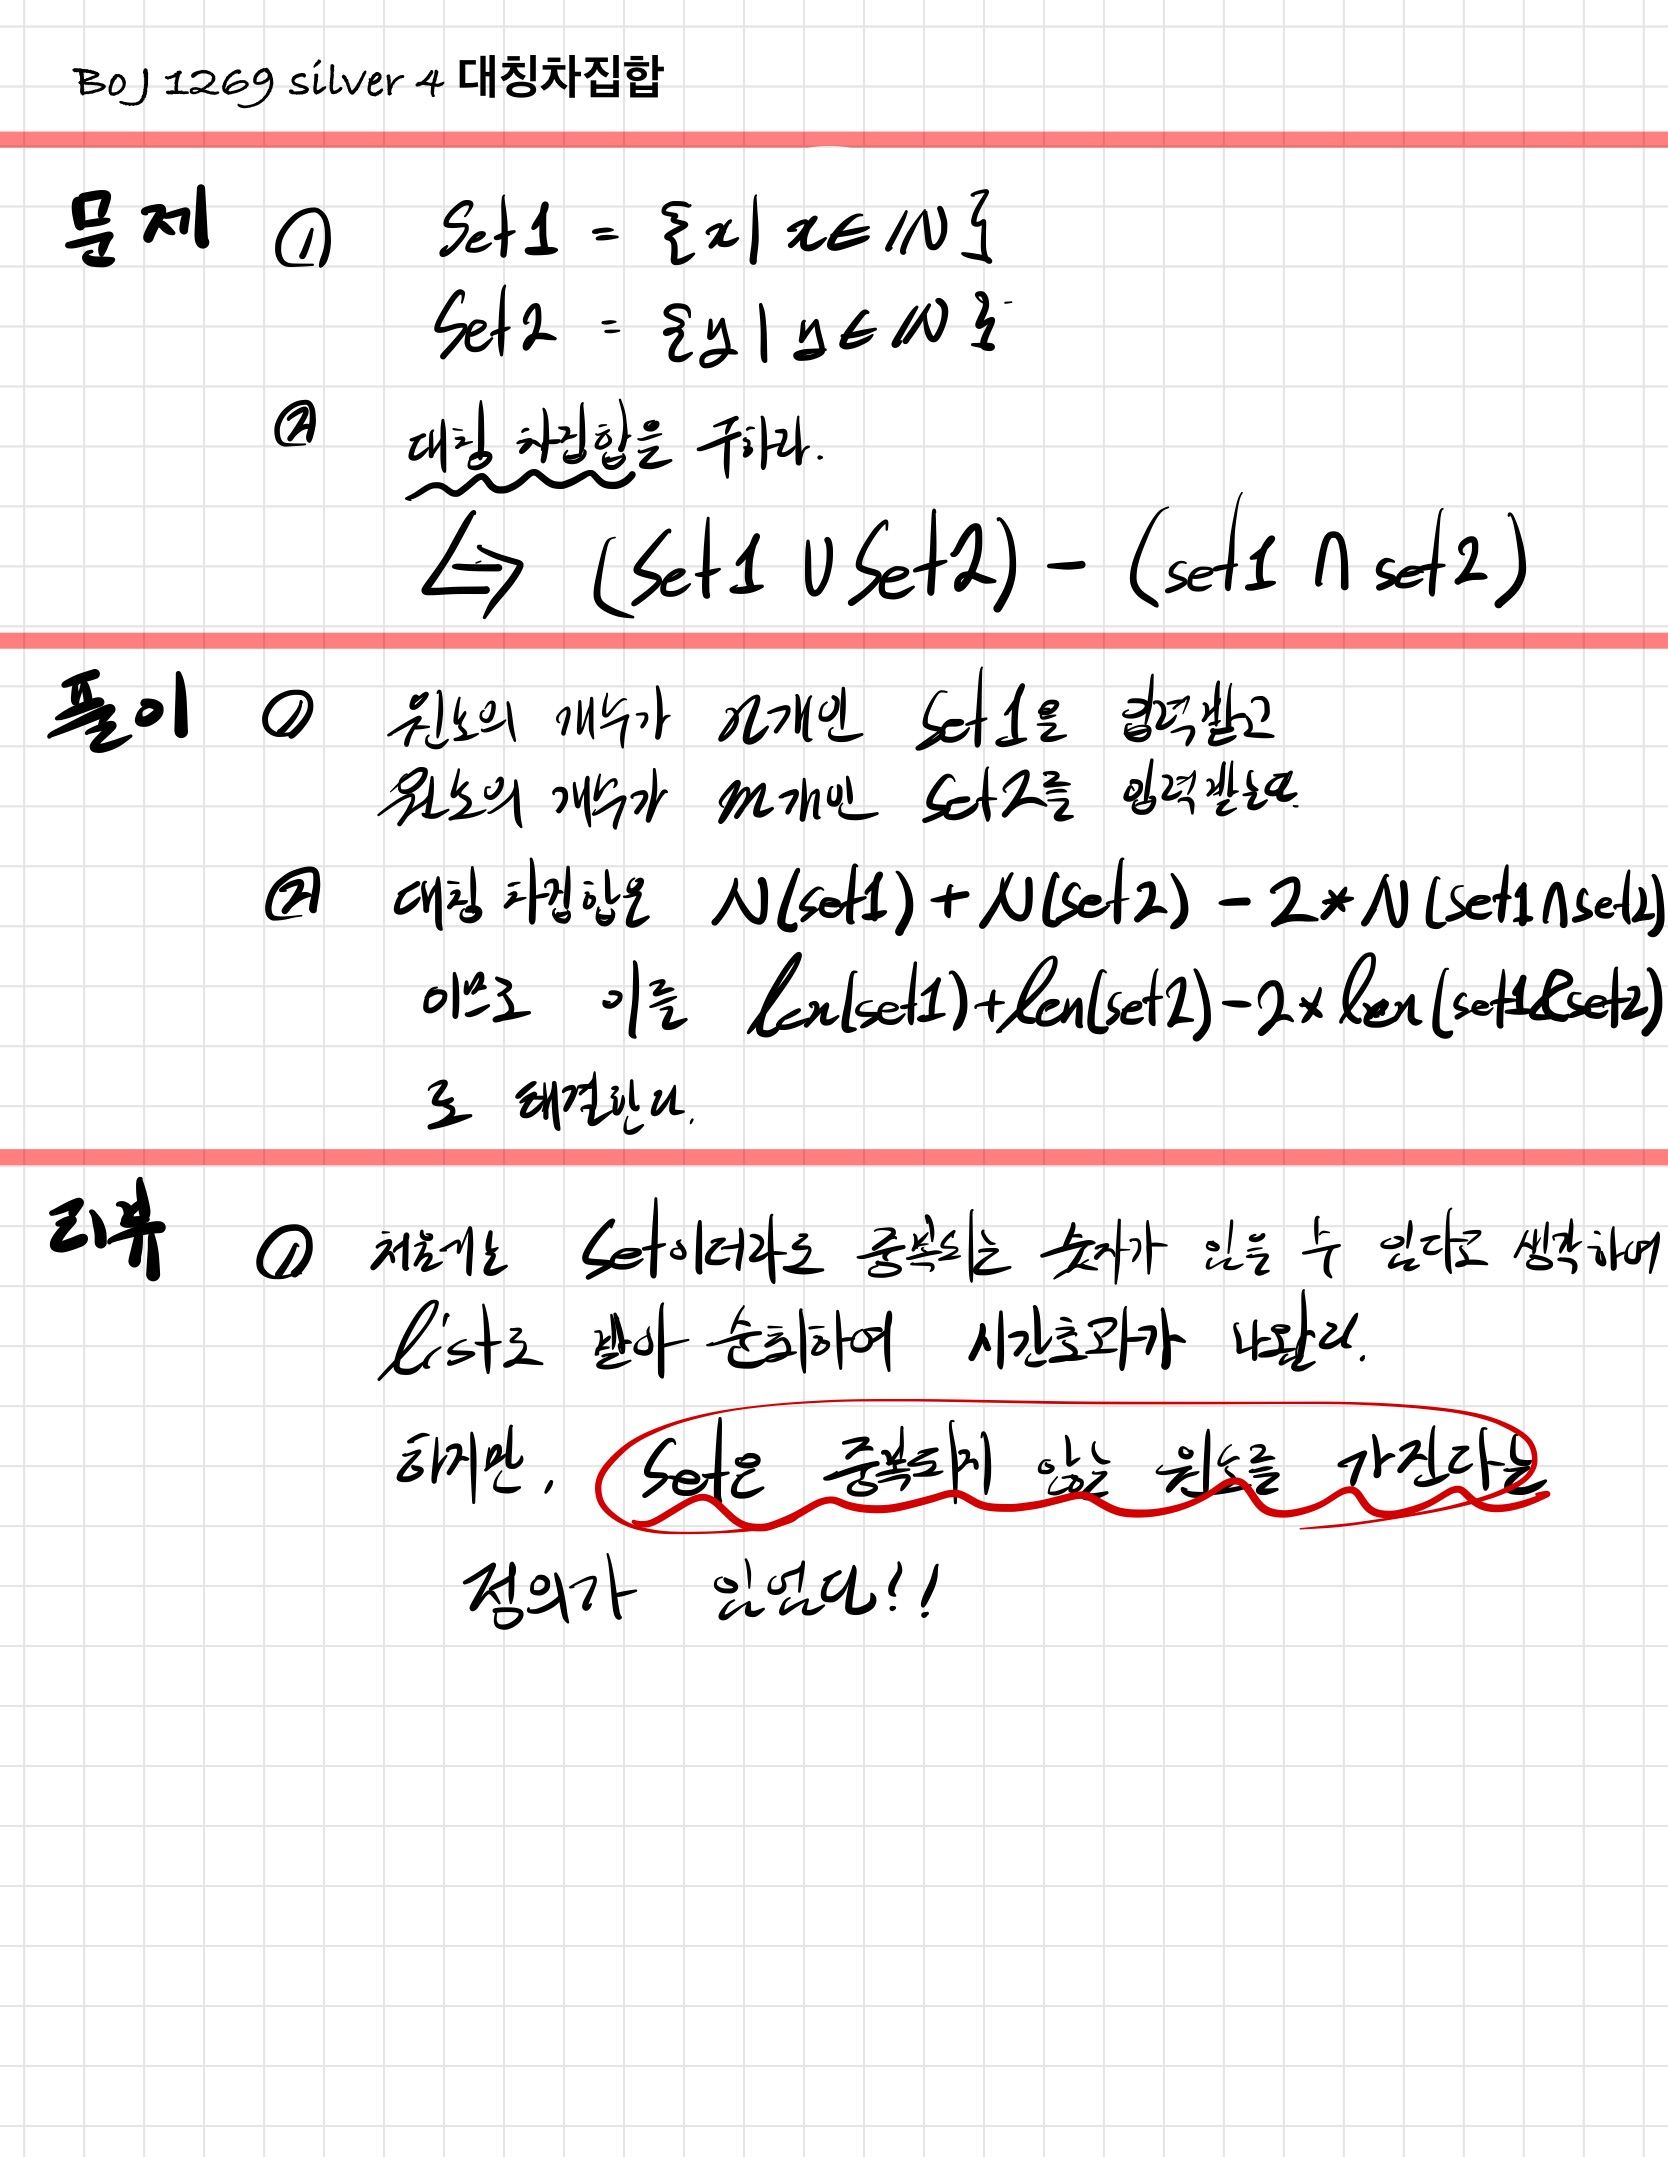 BOJ 1269 silver 4 대칭차집합
문제 ① Set1 = {x | x ∈ ℕ}
Set2 = {y | y ∈ ℕ}
② 대칭 차집합을 구하라.
⇔ (Set1 ∪ Set2) - (set1 ∩ set2)
풀이 ① 원소의 개수가 n개인 Set1을 입력받고
원소의 개수가 m개인 Set2를 입력받는다.
② 대칭 차집합은 N(set1) + N(set2) - 2* N(set1∩set2)
이므로 이를 len(set1)+len(set2)-2* len(set1&set2)
로 해결한다.
리뷰 ① 처음에는 Set이더라도 중복되는 숫자가 있을 수 있다고 생각하여
list로 받아 순회하여 시간초과가 나왔다.
하지만, Set은 중복되지 않는 원소를 가진다는
정의가 있었다!!